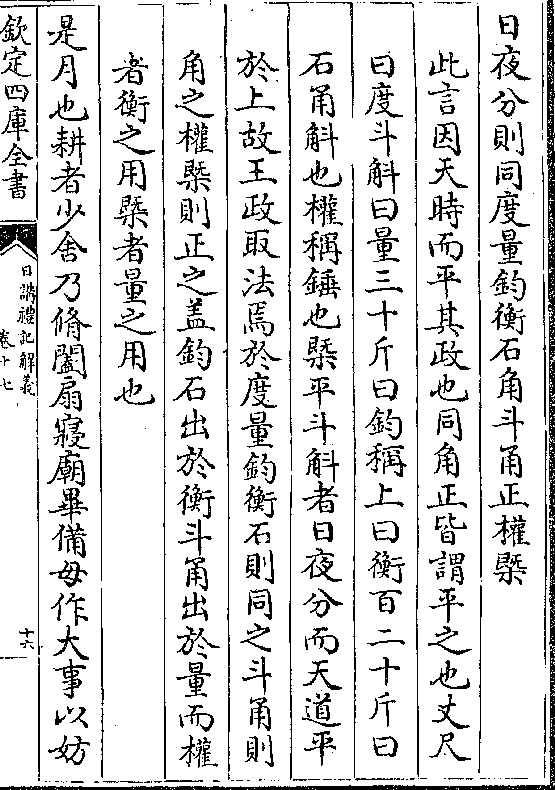 日夜分則同度量鈞衡石角斗甬正權槩
此言因天時而平其政也同角正皆謂平之也丈尺
曰度斗斛曰量三十斤曰鈞稱上曰衡百二十斤曰
石甬斛也權稱錘也槩平斗斛者日夜分而天道平
於上故王政取法焉於度量鈞衡石則同之斗甬則
角之權槩則正之盖鈞石出於衡斗甬出於量而權
者衡之用槩者量之用也
是月也耕者少舍乃脩闔扇寢廟畢備毋作大事以妨
欽定四庫全書
日講禮記解義
卷十七
十六